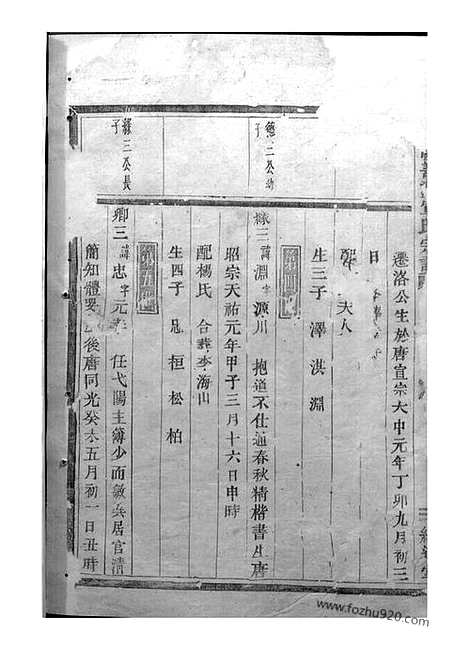 遷洛公生於唐宣宗大中元年丁卯九月初三
日
配 夫人
生三子 澤淇淵
第四
德三公幼子
三 諱淵字源川 抱道不仕通春秋精楷書生唐
昭宗天祐元年甲子三月十六日申時
配楊氏 合葬李海山
生四子 恒松柏
第五
緣三公長子
卿三 諱忠字元 任弋陽主簿少而敏長居官清
簡知體要 後唐同光癸未五月初一日丑時
www.fozhu920.com